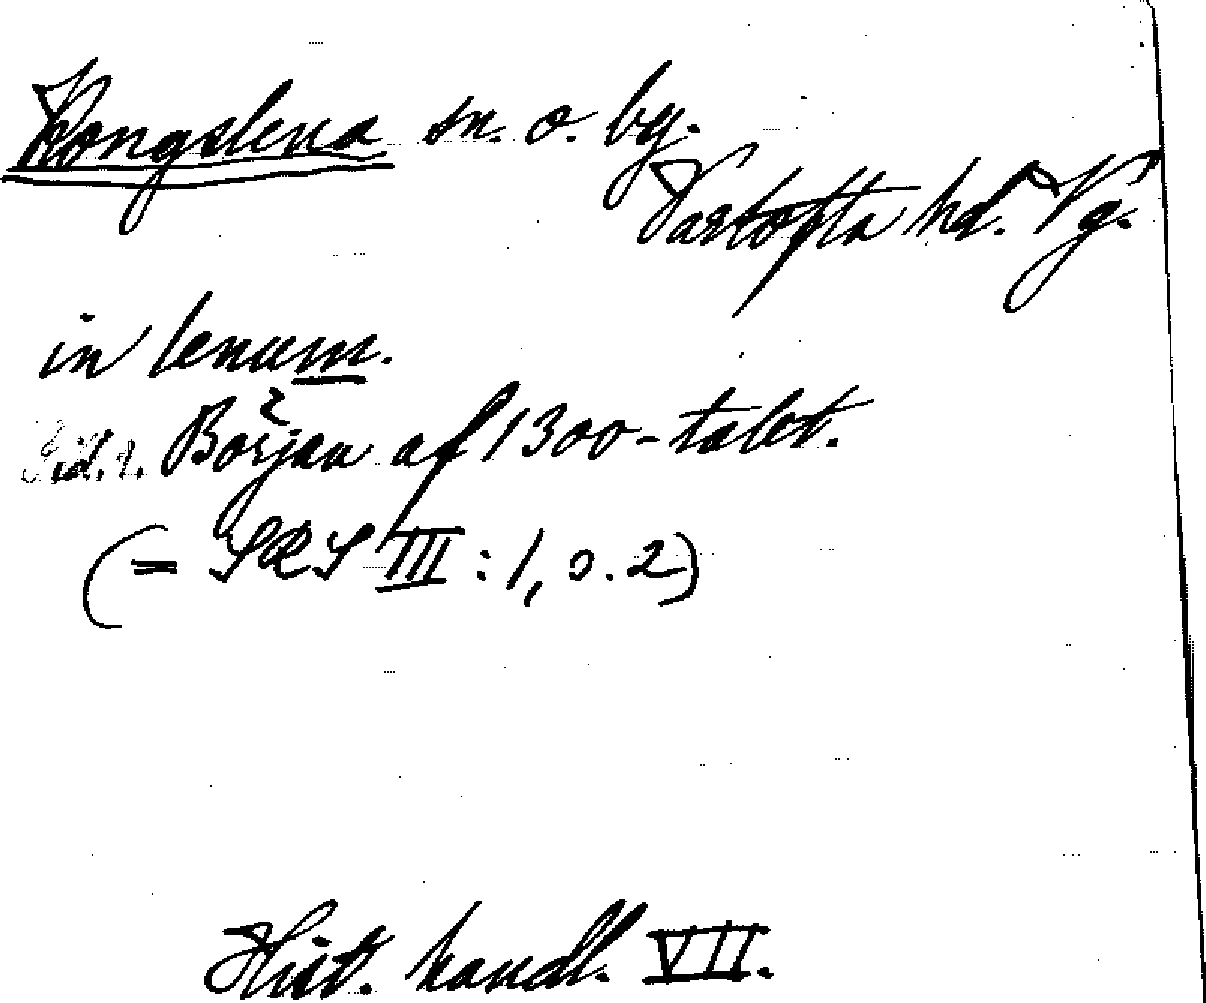 Kongslena sn. o. by.
Vartofta hd. Vg.
in lenum.
Sid. 1. Början af 1300-talet.
(= SRS III: 1, s. 2)
Hist. handl. VII.